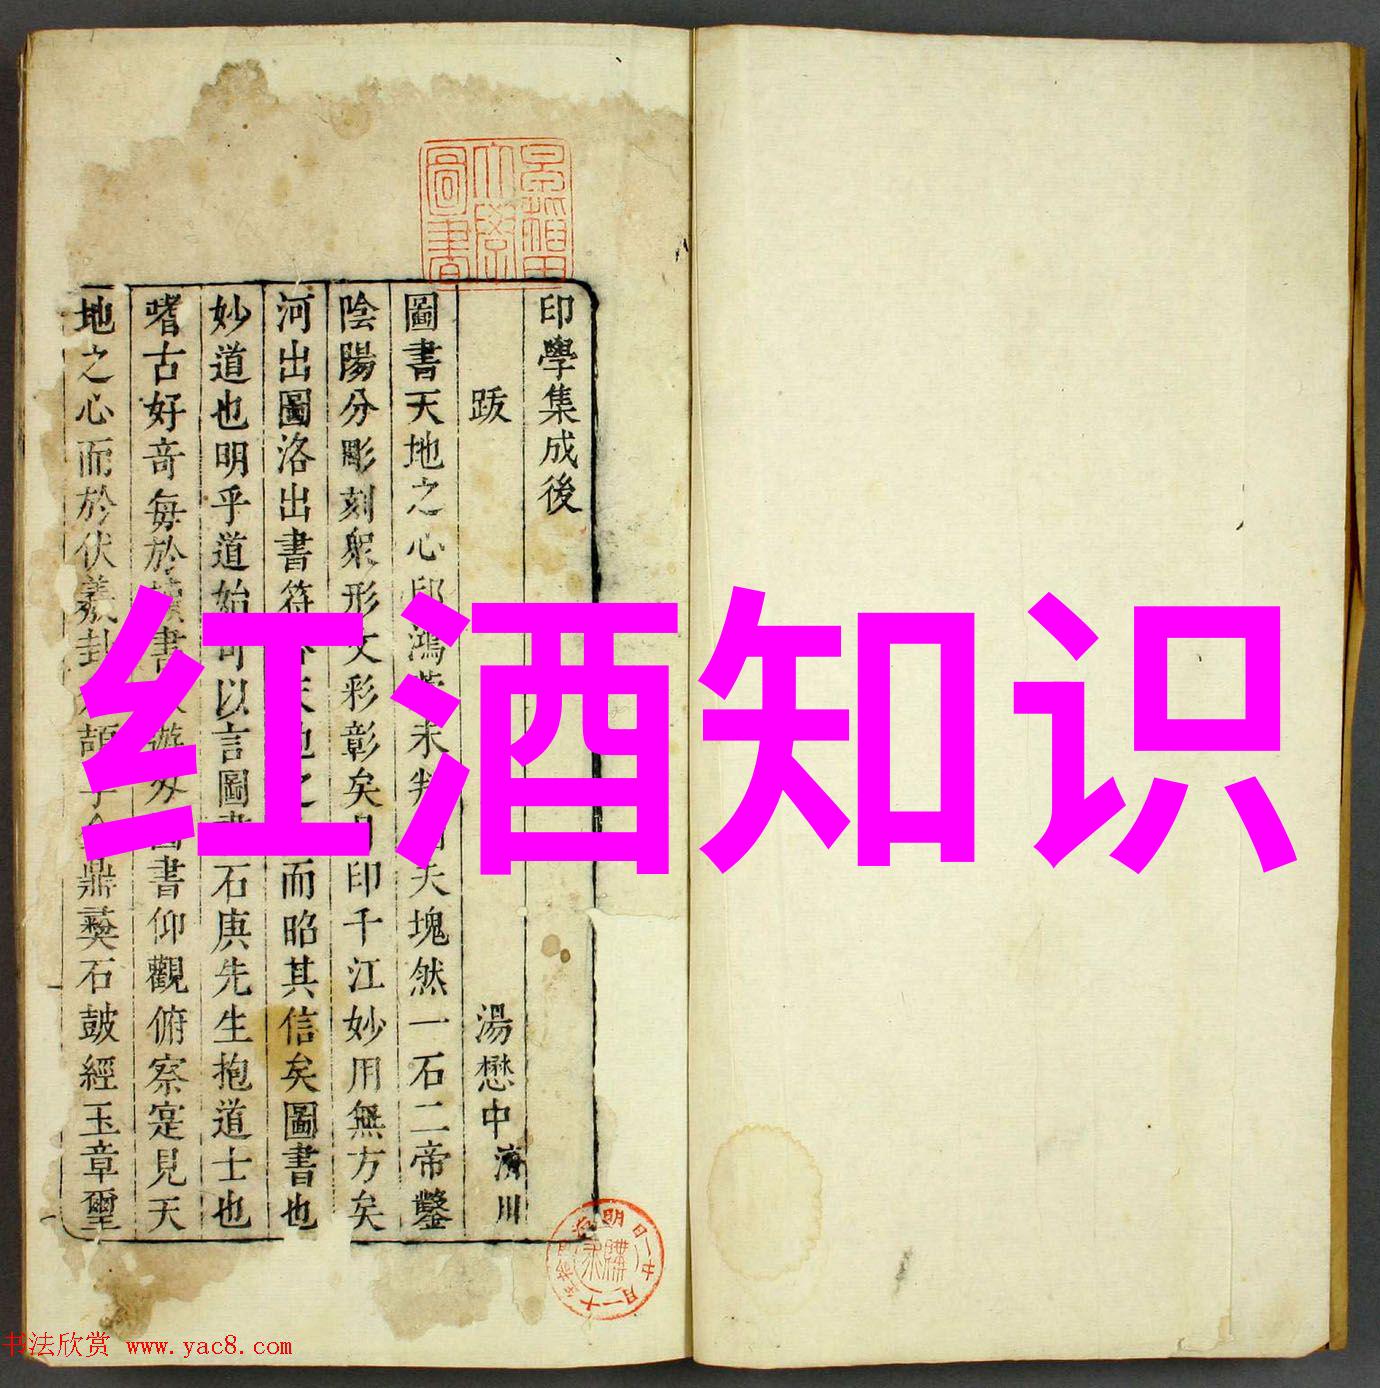 印學集成後
跋 湯懋中 濟川
圖書天地之心 未判 塊然一石二帝鑿
陰陽分彫刻衆形文彩彰矣 印千江妙用無方矣
河出圖洛出書符 而昭其信矣圖書也
妙道也明乎道始可以言圖書 石庚先生抱道士也
嗜古好奇每於 書 遊 書仰觀俯察寔見天
地之心而於伏羲卦 頡字 鼎彛石鼓經玉章璽
早稻田
大學
圖書
明治 十一月廿一日 購求
红酒知识
书法欣赏 www.yac8.com